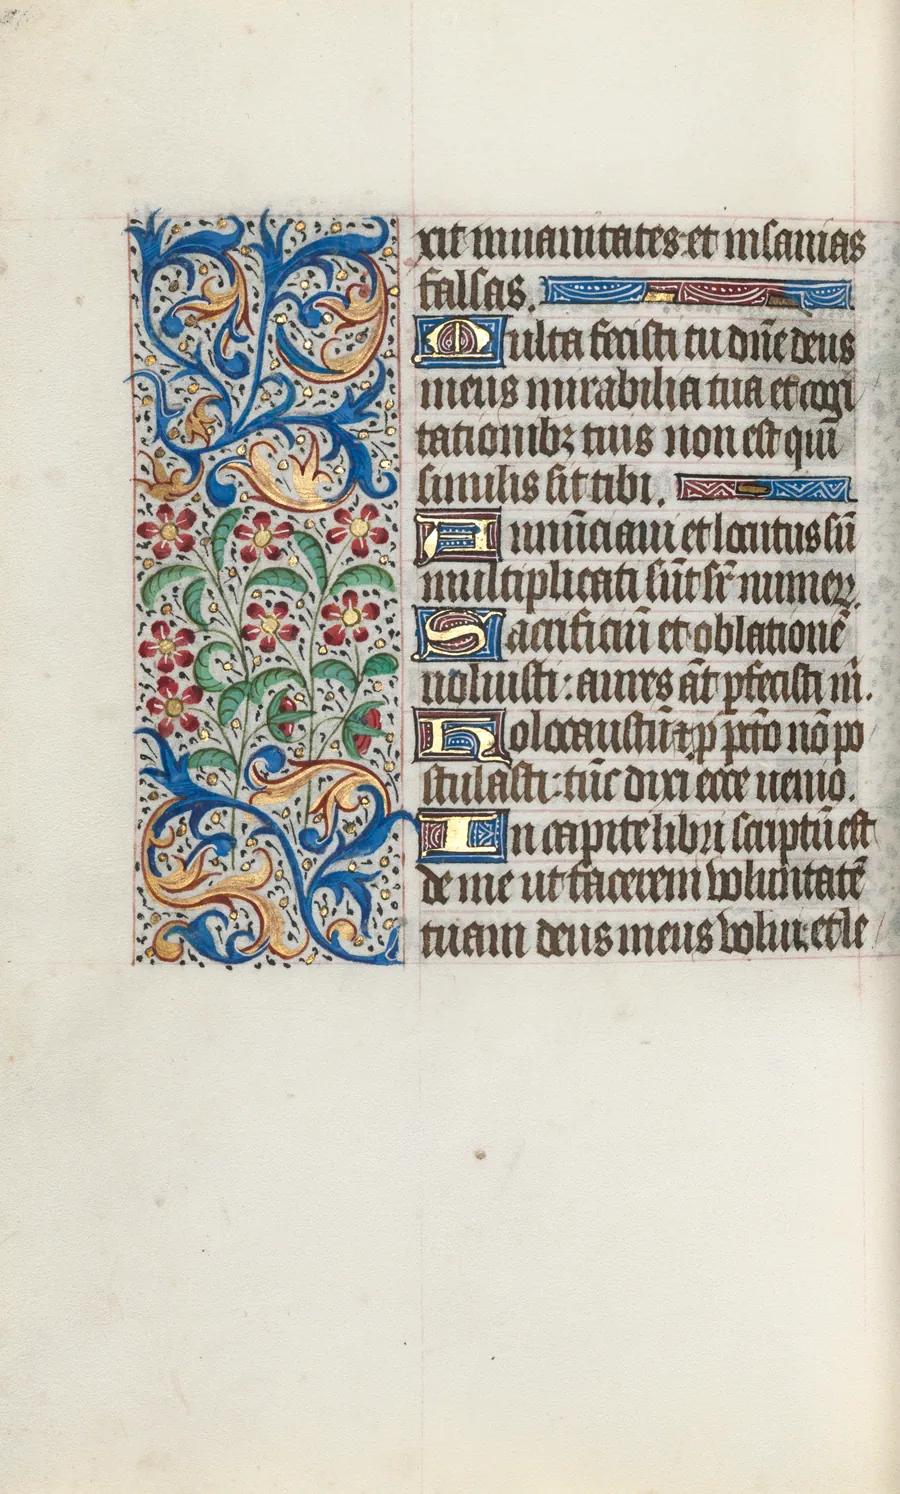 xit in uanitates et insanias
falsas.
Multa fecisti tu dn̄e deus
meus mirabilia tua et cogi
tationibꝫ tuis non est qui
similis sit tibi.
Annūciaui et locutus sū
multiplicati sūt sr̄ numeꝝ.
Sacrificiū et oblationē
noluisti: aures āt ꝑfecisti m̄.
Holocaustū ⁊ p̄ pcc̄to nō po
stulasti: tūc dixi ecce uenio.
In capite libri scriptū est
de me ut facerem voluntatē
tuam deus meus volui: et le